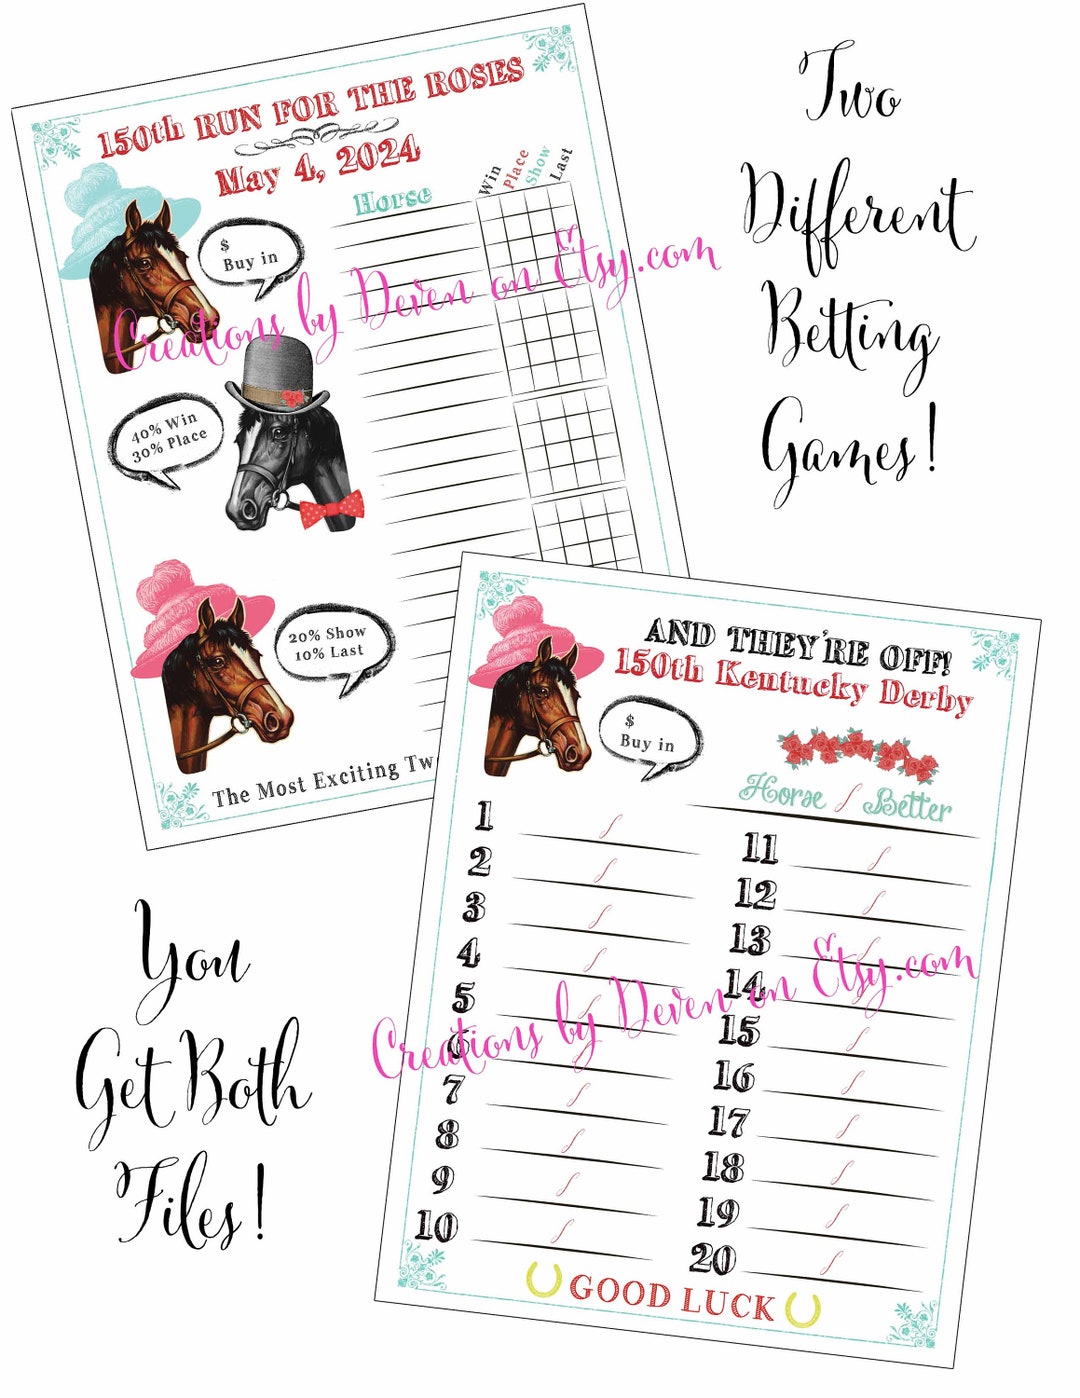 Two
Different
Betting
Games!
150th RUN FOR THE ROSES
May 4, 2024
Horse
Win
Place
Show
Last
$
Buy in
Creations by Deven on Etsy.com
40% Win
30% Place
20% Show
10% Last
The Most Exciting Tw
AND THEY'RE OFF!
150th Kentucky Derby
$
Buy in
Horse / Better
1 /
2 /
3 /
4 /
5 /
6 /
7 /
8 /
9 /
10 /
11 /
12 /
13 /
14 /
15 /
16 /
17 /
18 /
19 /
20 /
Creations by Deven on Etsy.com
GOOD LUCK
You
Get Both
Files!